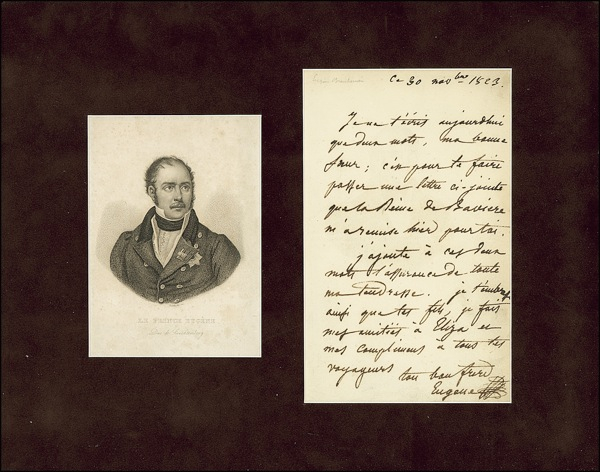 LE PRINCE EUGÈNE
Duc de Leuchtenberg
Ce 30 nov.bre 1823.
Je ne t'écris aujourdhui
que deux mots, ma bonne
soeur; c'est pour te faire
passer une lettre ci-jointe
que la Reine de Baviere
m'a remise hier pour toi.
j'ajoute à ces deux
mots l'assurance de toute
ma tendresse. je t'embrasse
ainsi que tes fils, je fais
mes amitiés à Eliza et
mes compliments à tous tes
voyageurs
ton bon frere
Eugene